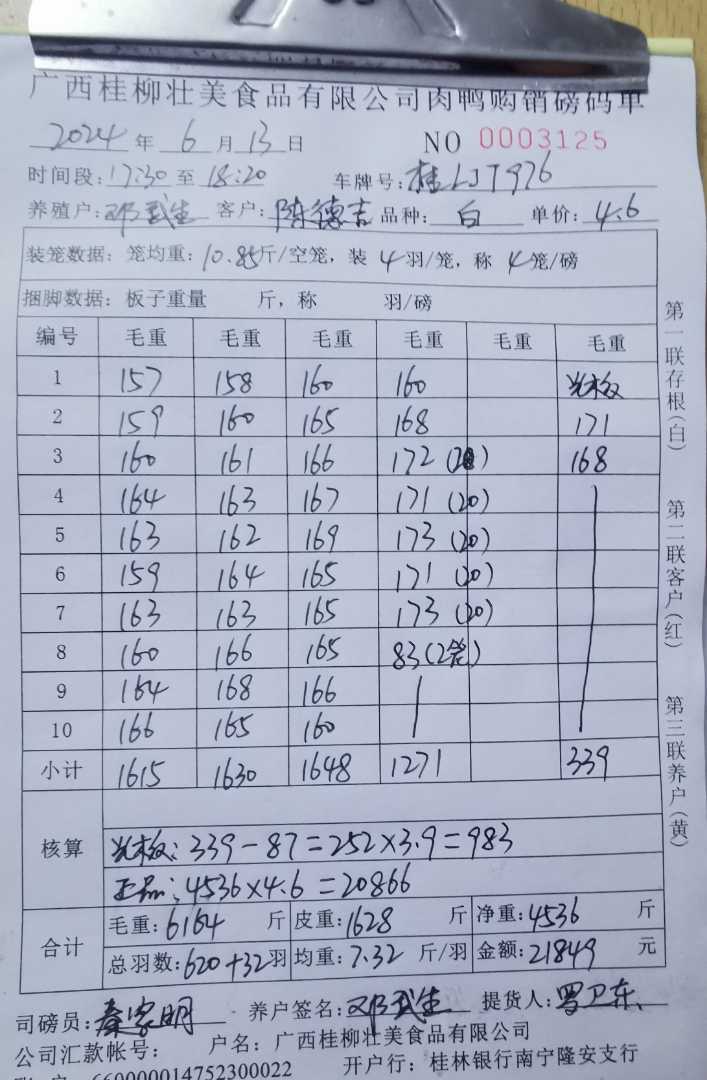 广西桂柳壮美食品有限公司肉鸭购销磅码单
2024 年 6 月 13 日 NO 0003125
时间段: 17:30 至 18:20 车牌号: 桂LJT976
养殖户: 邓武生 客户: 陈德吉 品种: 白 单价: 4.6
装笼数据: 笼均重: 10.85斤/空笼, 装 4 羽/笼, 称 4 笼/磅
捆脚数据: 板子重量 斤, 称 羽/磅
编号 毛重 毛重 毛重 毛重 毛重 毛重
1 157 158 160 160 光板
2 159 160 165 168 171
3 160 161 166 172 (20) 168
4 164 163 167 171 (20)
5 163 162 169 173 (20)
6 159 164 165 171 (20)
7 163 163 165 173 (20)
8 160 166 165 83 (2笼)
9 164 168 166
10 166 165 160
小计 1615 1630 1648 1271 339
核算
光板: 339-87=252×3.9=983
正品: 4536×4.6=20866
合计
毛重: 6164 斤 皮重: 1628 斤 净重: 4536 斤
总羽数: 620+32羽 均重: 7.32 斤/羽 金额: 21849 元
司磅员: 秦家明 养户签名: 邓武生 提货人: 罗卫东
公司汇款帐号: 户名: 广西桂柳壮美食品有限公司
660000014752300022 开户行: 桂林银行南宁隆安支行
第一联存根(白)
第二联客户(红)
第三联养户(黄)